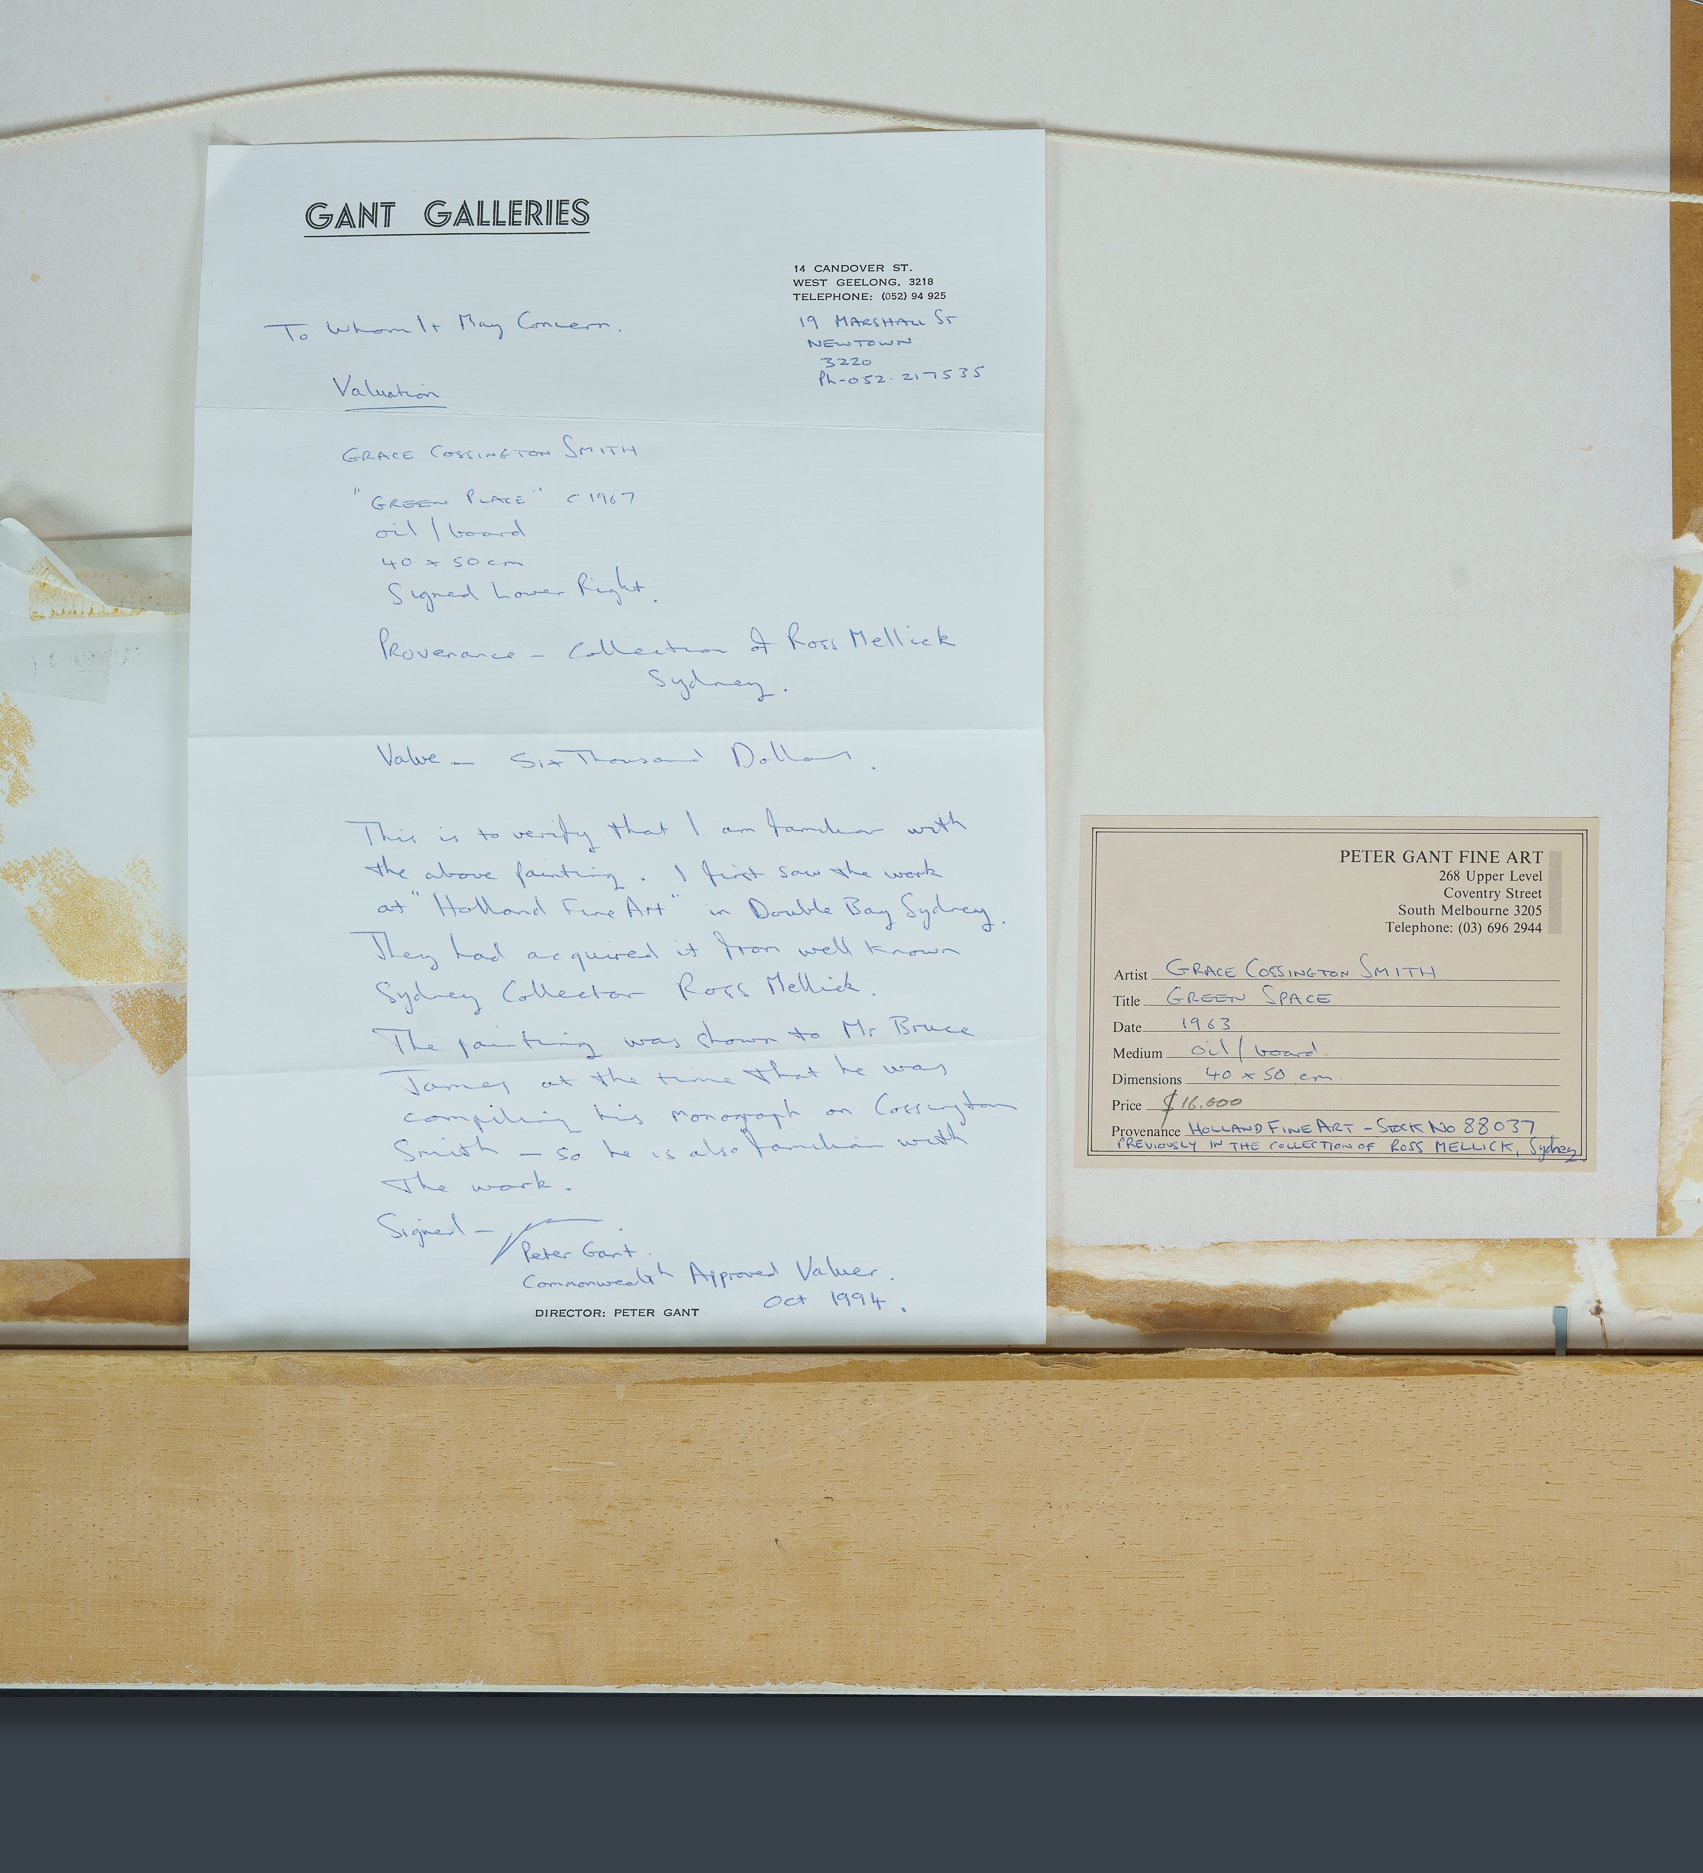 GANT GALLERIES
14 CANDOVER ST.
WEST GEELONG, 3218
TELEPHONE: (052) 94 925
19 MARSHALL ST
NEWTOWN
3220
Ph-052.217535
To Whom It May Concern.
Valuation
GRACE COSSINGTON SMITH
"GREEN PLACE" C1967
oil/board
40 x 50cm
Signed Lower Right.
Provenance - Collection of Ross Mellick
Sydney.
Value - Six Thousand Dollars.
This is to verify that I am familiar with
the above painting. I first saw the work
at "Holland Fine Art" in Double Bay Sydney.
They had acquired it from well known
Sydney Collector Ross Mellick.
The painting was shown to Mr Bruce
James at the time that he was
compiling his monograph on Cossington
Smith - so he is also familiar with
the work.
Signed -
Peter Gant.
Commonwealth Approved Valuer.
Oct 1994.
DIRECTOR: PETER GANT
PETER GANT FINE ART
268 Upper Level
Coventry Street
South Melbourne 3205
Telephone: (03) 696 2944
Artist GRACE COSSINGTON SMITH
Title GREEN SPACE
Date 1963
Medium oil/board.
Dimensions 40 x 50 cm.
Price $16.600
Provenance HOLLAND FINE ART - STOCK No 88037
PREVIOUSLY IN THE COLLECTION OF ROSS MELLICK, Sydney.